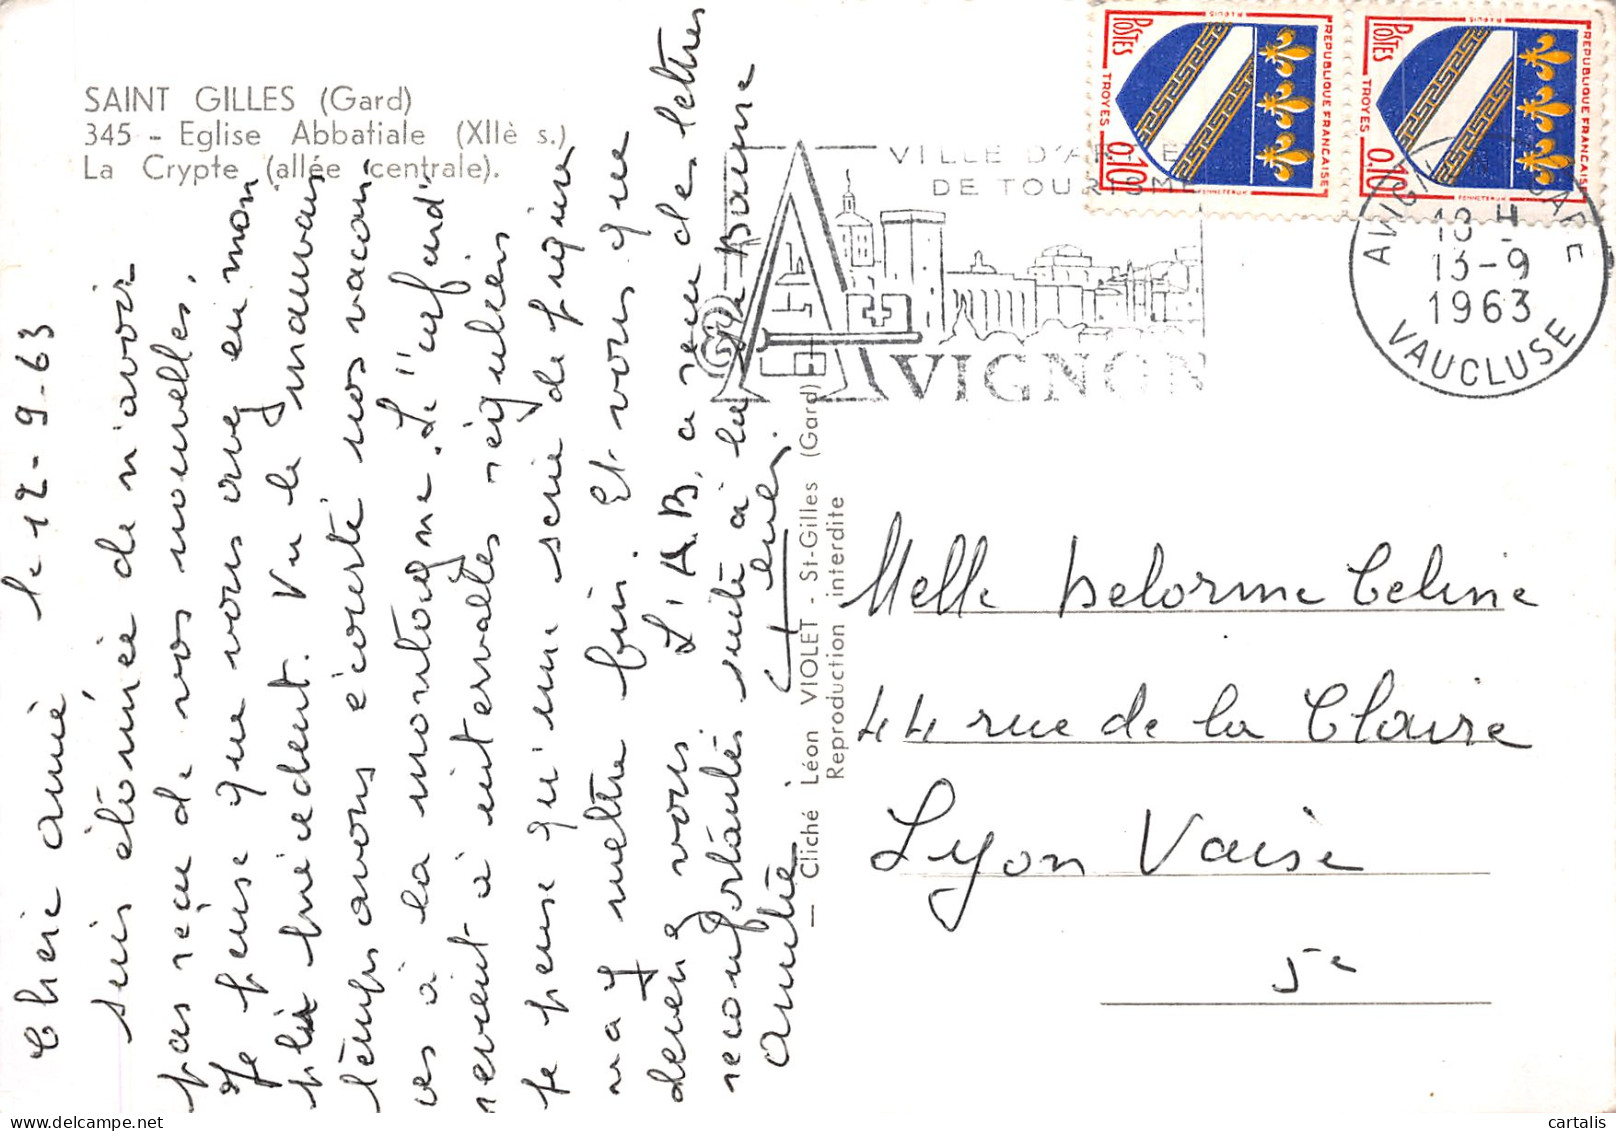 SAINT GILLES (Gard)
345 - Eglise Abbatiale (XIIè s.)
La Crypte (allée centrale).
le 12-9-63
Chère amie
suis étonnée de n'avoir
pas reçu de vos nouvelles.
Je pense que vous avez eu mon
pli précédent. Vu le mauvais
temps avons écourté nos vacan
ces à la montagne. Le "urfund"
revient à intervalles réguliers
je pense qu'une série de piqures
va y mettre fin. Et vous que
devenez vous. L'I.A.B. a reçu des lettres
reconfortantes suite à la Baume
Amitié
— Cliché Léon VIOLET - St-Gilles (Gard)
Reproduction interdite
VILLE D'ART ET
DE TOURISME
AVIGNON
POSTES
REPUBLIQUE FRANÇAISE
TROYES
0,10
POSTES
REPUBLIQUE FRANÇAISE
TROYES
0,10
AVIGNON GARE
18 H
13-9
1963
VAUCLUSE
Melle Delorme Celine
44 rue de la Claire
Lyon Vaise
5e
cartalis